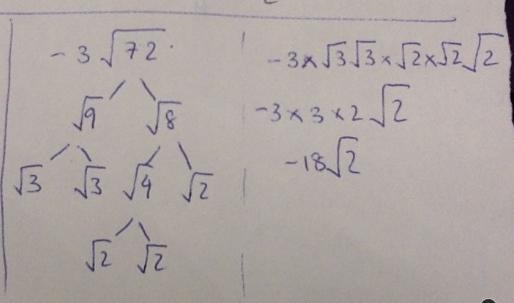 -3√72
√9 √8
√3 √3 √4 √2
√2 √2
-3×√3√3×√2×√2√2
-3×3×2√2
-18√2